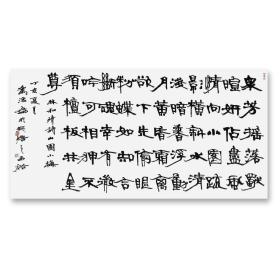 衆芳摇落獨
暄妍占盡風
情向小園疏
影横斜水清
淺暗香浮動
月黄昏霜禽
欲下先偷眼
粉蝶如知合
斷魂幸有微
吟可相狎不
須檀板共金
尊
林和靖詩山園小梅
丁亥夏